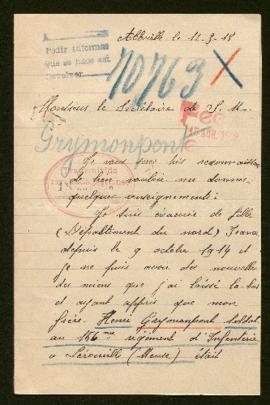 Abbeville le 11-3-18
Pedir informes
que se hace est
70763 X
Monsieur le Secrétaire de S. M.
Grymonpont
Je vous serais très reconnaissante
de bien vouloir me donner
quelques renseignements.
Je suis évacuée de Lille
(Département du nord) France
depuis le 9 octobre 1914 et
je ne puis avoir des nouvelles
des miens que j'ai laissé là-bas
et ayant appris que mon
frère. Henri Grymonpont soldat
au 156me régiment d'Infanterie
à Lérouville (Meuse) était